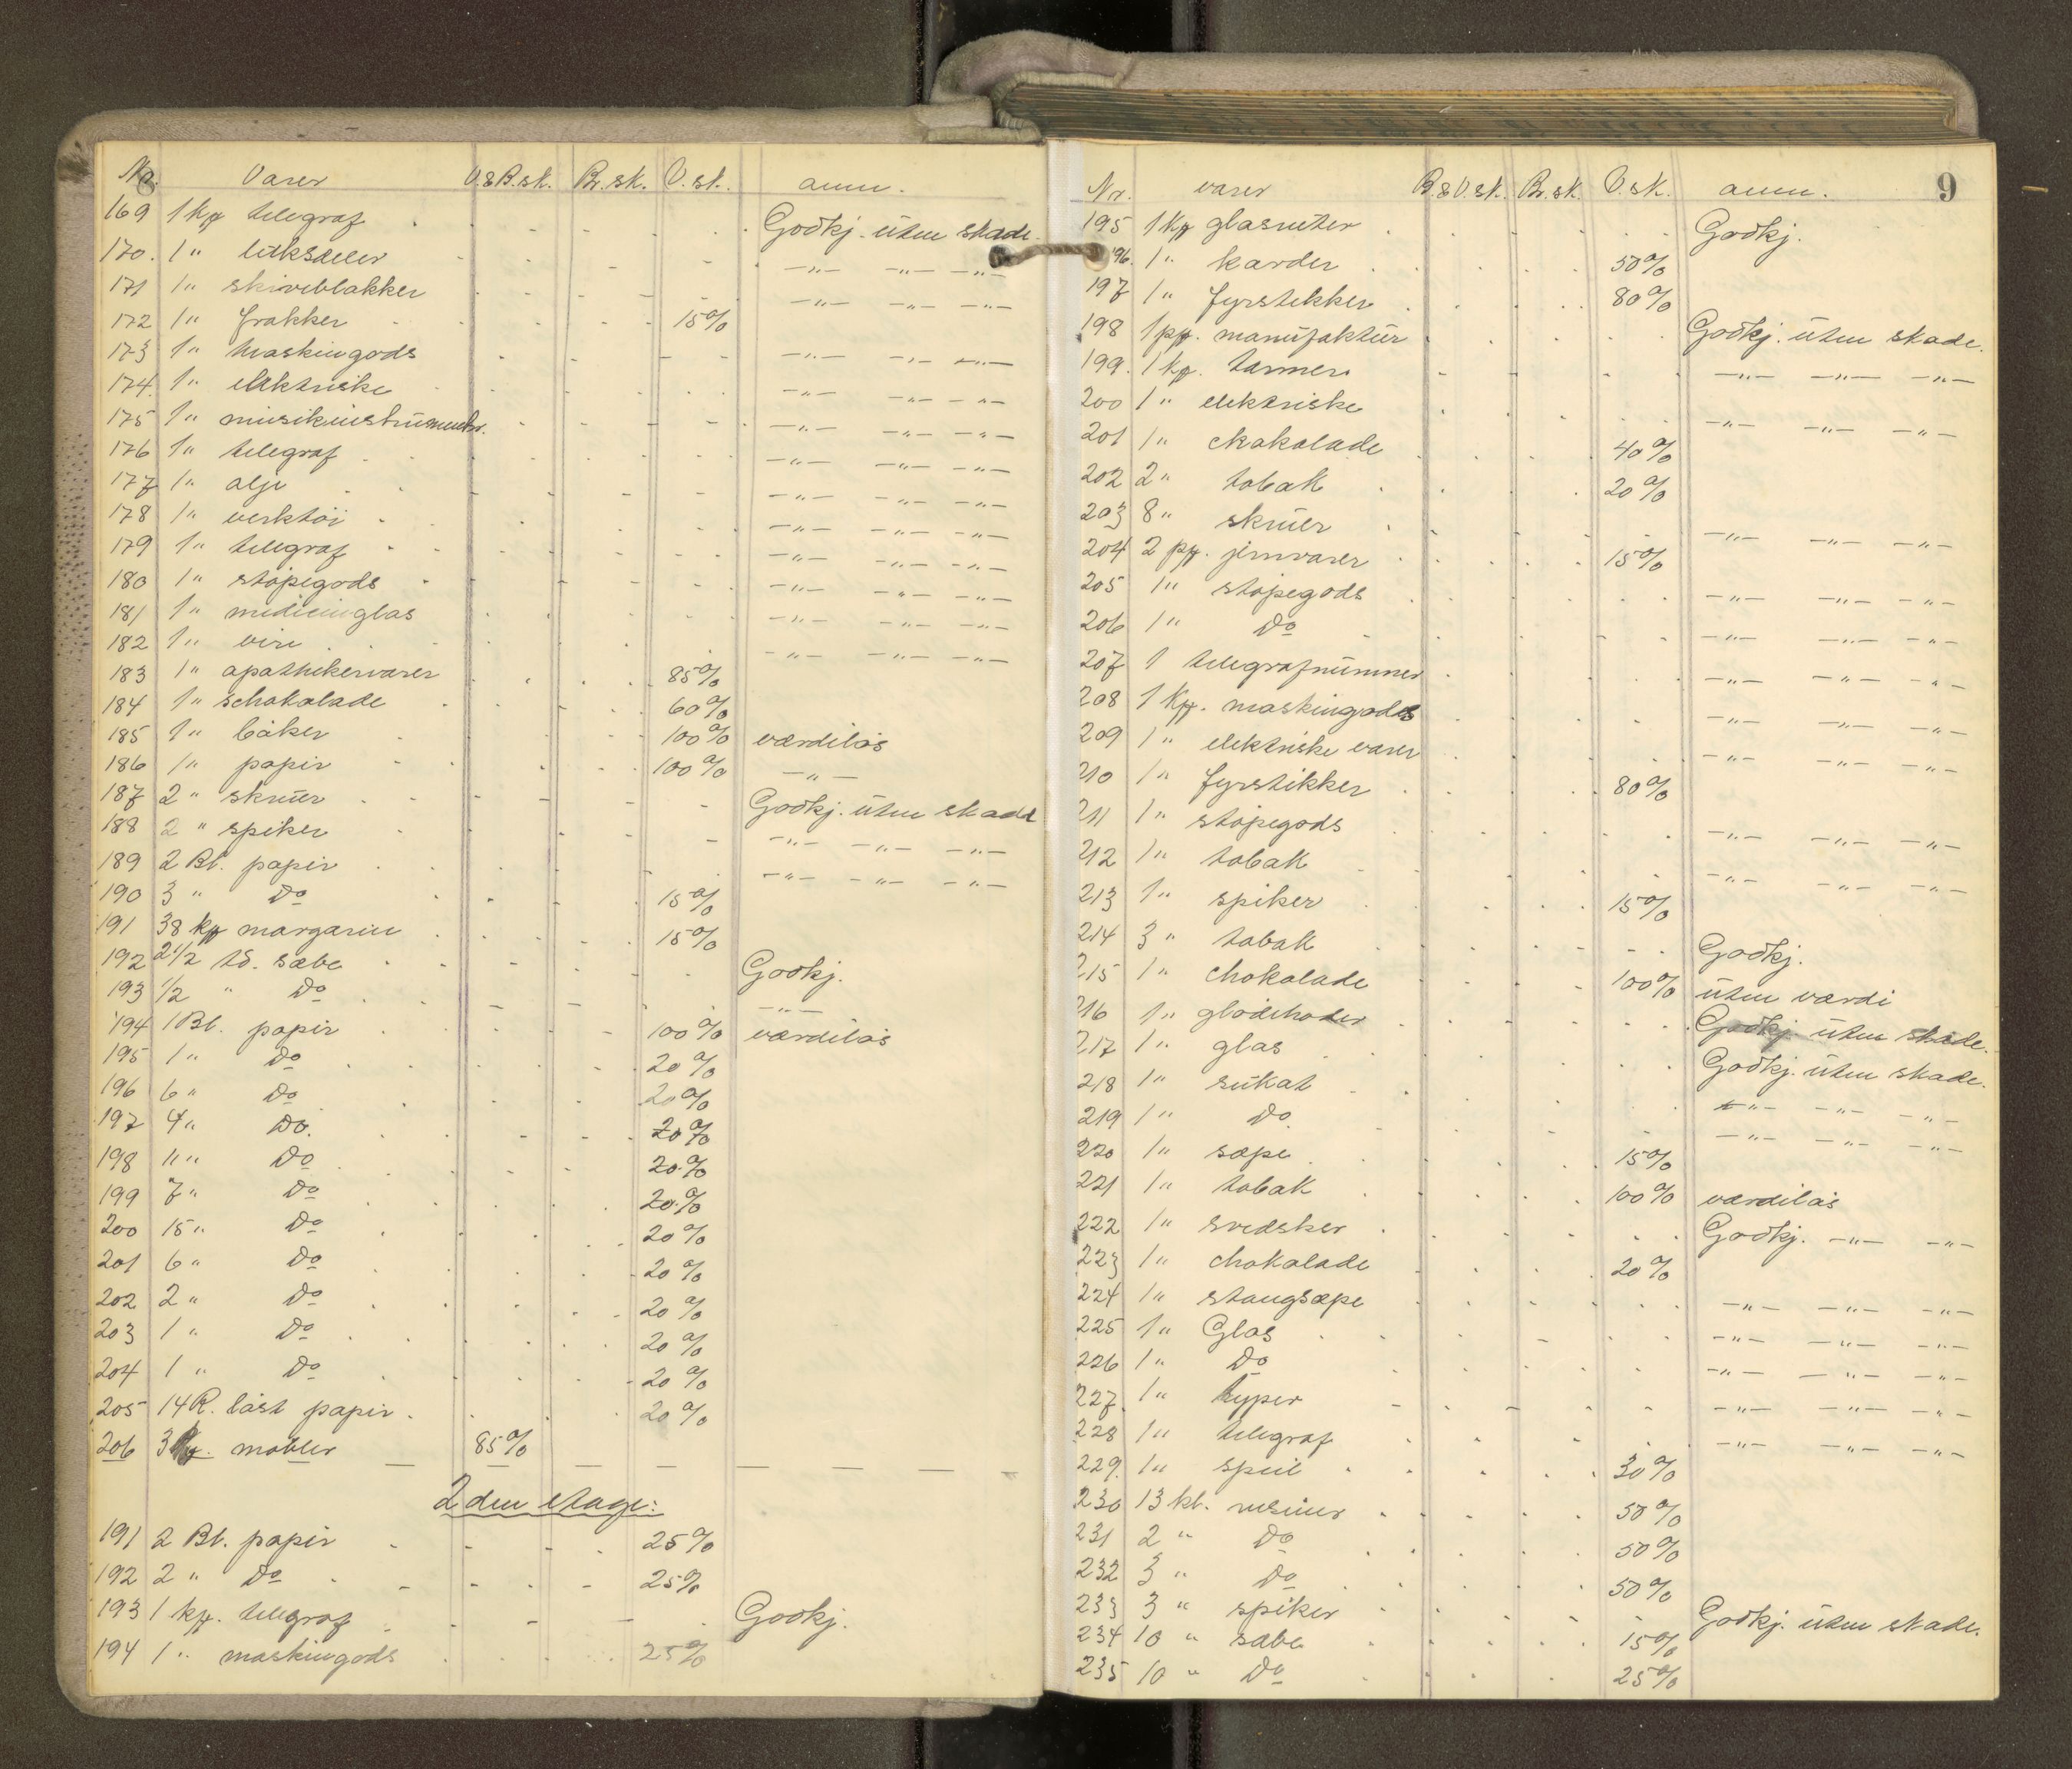 No. Varer V.&B.sk. Br.sk. V.sk. anm.
169 1 kf telegraf Godkj. uten skade.
170. 1 " —"— —"— —"—
171 1 " skiveblakker —"— —"— —"—
172 1 " frakker 15%
173 1 " maskingods —"— —"— —"—
174. 1 " elektriske —"— —"— —"—
175 1 " musikinstrumenter. —"— —"— —"—
176 1 " telegraf —"— —"— —"—
177 1 " olje —"— —"— —"—
178 1 " verktøi —"— —"— —"—
179 1 " telegraf —"— —"— —"—
180 1 " støpegods —"— —"— —"—
181 1 " medicinglas —"— —"— —"—
182 1 " vire —"— —"— —"—
183 1 " apothekervarer 85%
184 1 " schokolade 60%
185 1 " bøker 100% værdiløs
186 1 " papir 100% —"—
187 2 " skruer Godkj. uten skade
188 2 " spiker —"— —"— —"—
189 2 Bl. papir —"— —"— —"—
190 3 " Do 15%
191 38 kf margarin 15%
192 2 1/2 td. sæbe Godkj.
193 1/2 " Do —"—
194 1 Bl. papir 100% værdiløs
195 1 " Do 20%
196 6 " Do 20%
197 4 " Do. 20%
198 11 " Do 20%
199 7 " Do 20%
200 15 " Do 20%
201 6 " Do 20%
202 2 " Do 20%
203 1 " Do 20%
204 1 " Do 20%
205 14 R. løst papir. 20%
206 3 møbler 85%
2den etage:
191 2 Bl. papir 25%
192 2 " Do 25%
193 1 kf. telegraf Godkj.
194 1 " maskingods 25%
9
Nr. varer B.&V.sk. Br.sk. V.sk. anm.
195 1 kf glasruter Godkj.
196. 1 " karder 50%
197 1 " fyrstikker 80%
198 1 pf. manufaktur Godkj. uten skade.
199. 1 kf. —"— —"— —"—
200 1 " elektriske —"— —"— —"—
201 1 " chokolade 40%
202 2 " tobak 20%
203 8 " skruer —"— —"— —"—
204 2 pf. jernvarer 15%
205 1 " støpegods —"— —"— —"—
206 1 " Do —"— —"— —"—
207 1 telegrafnummer —"— —"— —"—
208 1 kf. maskingods —"— —"— —"—
209 1 " elektriske varer —"— —"— —"—
210 1 " fyrstikker 80%
211 1 " støpegods —"— —"— —"—
212 1 " tobak —"— —"— —"—
213 1 " spiker 15%
214 3 " tobak Godkj.
215 1 " chokolade 100% uten værdi
216 1 " glødehoder Godkj. uten skade.
217 1 " glas Godkj. uten skade.
218 1 " sukat —"— —"— —"—
219 1 " Do —"— —"— —"—
220 1 " sæpe 15%
221 1 " tobak 100% værdiløs
222 1 " svedsker Godkj. —"— —"—
223 1 " chokolade 20%
224 1 " stangsæpe —"— —"— —"—
225 1 " Glas —"— —"— —"—
226 1 " Do —"— —"— —"—
227. 1 " typer —"— —"— —"—
228 1 " telegraf —"— —"— —"—
229. 1 " speil 30%
230 13 kl. rosiner 50%
231 2 " Do 50%
232 3 " Do 50%
233 3 " spiker Godkj. uten skade.
234 10 " sæbe 15%
235 10 " Do 25%